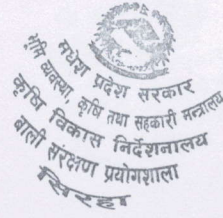 मधेश प्रदेश सरकार
भूमि व्यवस्था, कृषि तथा सहकारी मन्त्रालय
कृषि विकास निर्देशनालय
बाली संरक्षण प्रयोगशाला
सिरहा